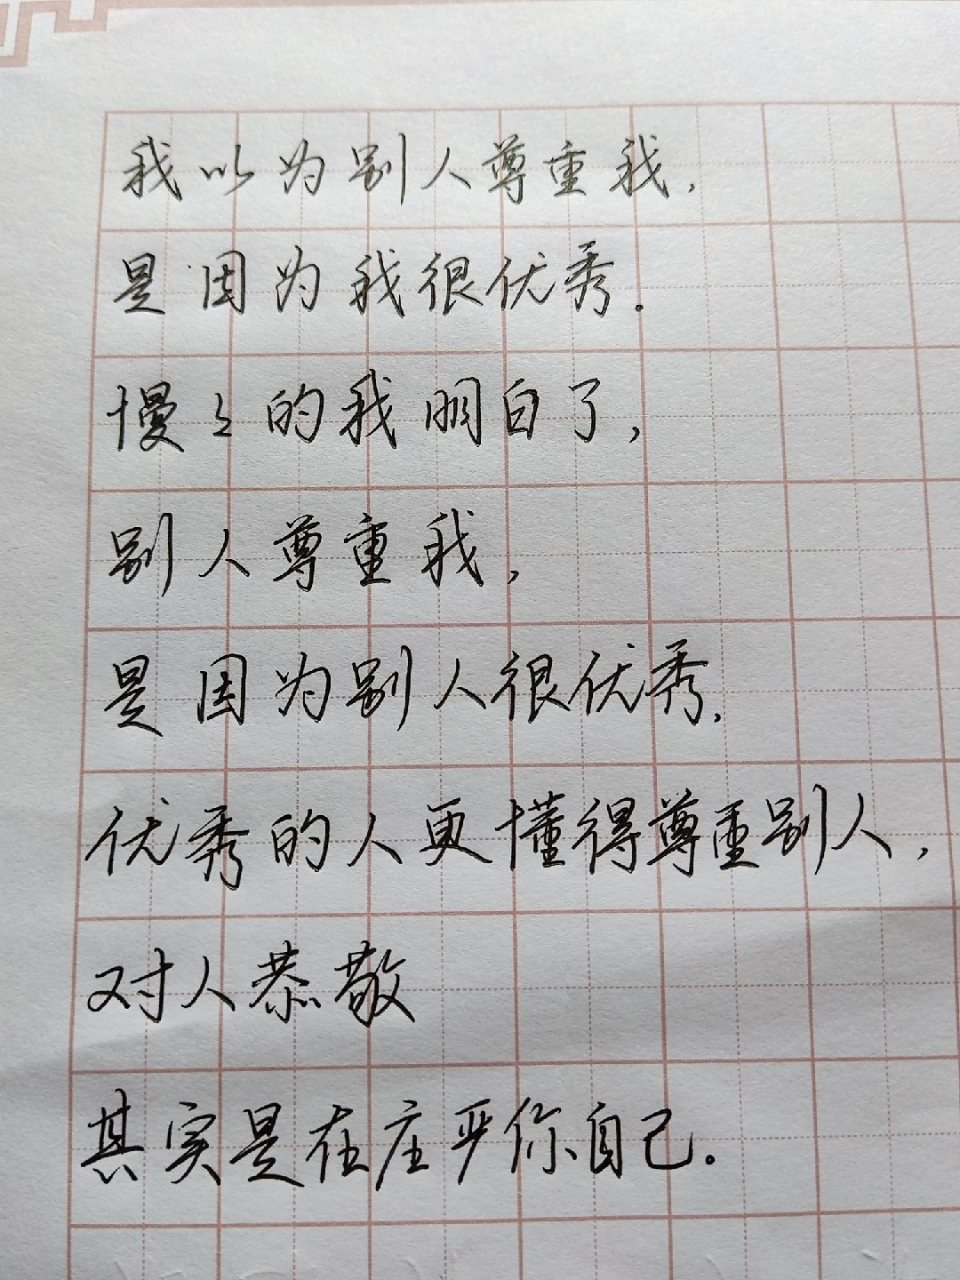 我以为别人尊重我，
是因为我很优秀。
慢々的我明白了，
别人尊重我，
是因为别人很优秀，
优秀的人更懂得尊重别人，
对人恭敬
其实是在庄严你自己。